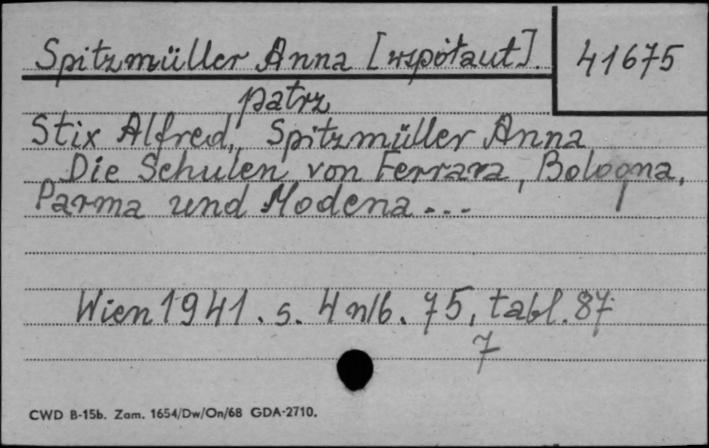 Spitzmüller Anna [współaut].
41675
patrz
Stix Alfred, Spitzmüller Anna
Die Schulen von Ferrara, Bologna,
Parma und Modena...
Wien 1941. s. 4 nlb. 75, tabl. 87
7
CWD B-15b. Zam. 1654/Dw/On/68 GDA-2710.